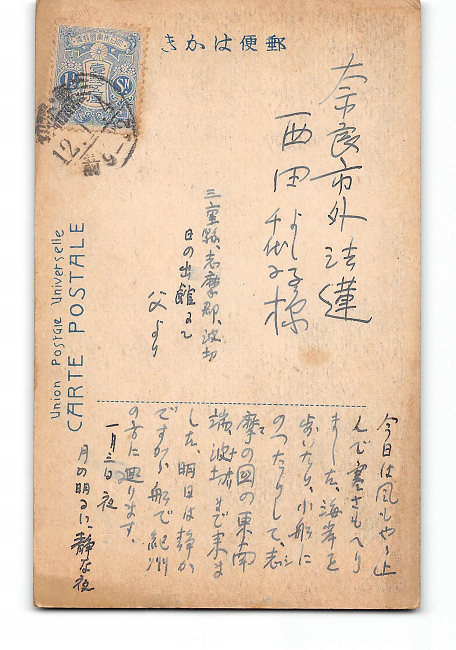 郵便はかき
奈良市外法蓮
西田よし子様
千代子
三重縣、志摩郡、波切
日の出館にて
父より
今日は風もやゝ止
んで寒さもへり
ました、海岸を
歩いたり、小船に
のつたりして志
摩の国の東南
端、波切まで来ま
した、明日は静か
ですから船で紀州
の方に廻ります。
一月三日夜
月の明るい、静な夜
Union Postale Universelle
CARTE POSTALE